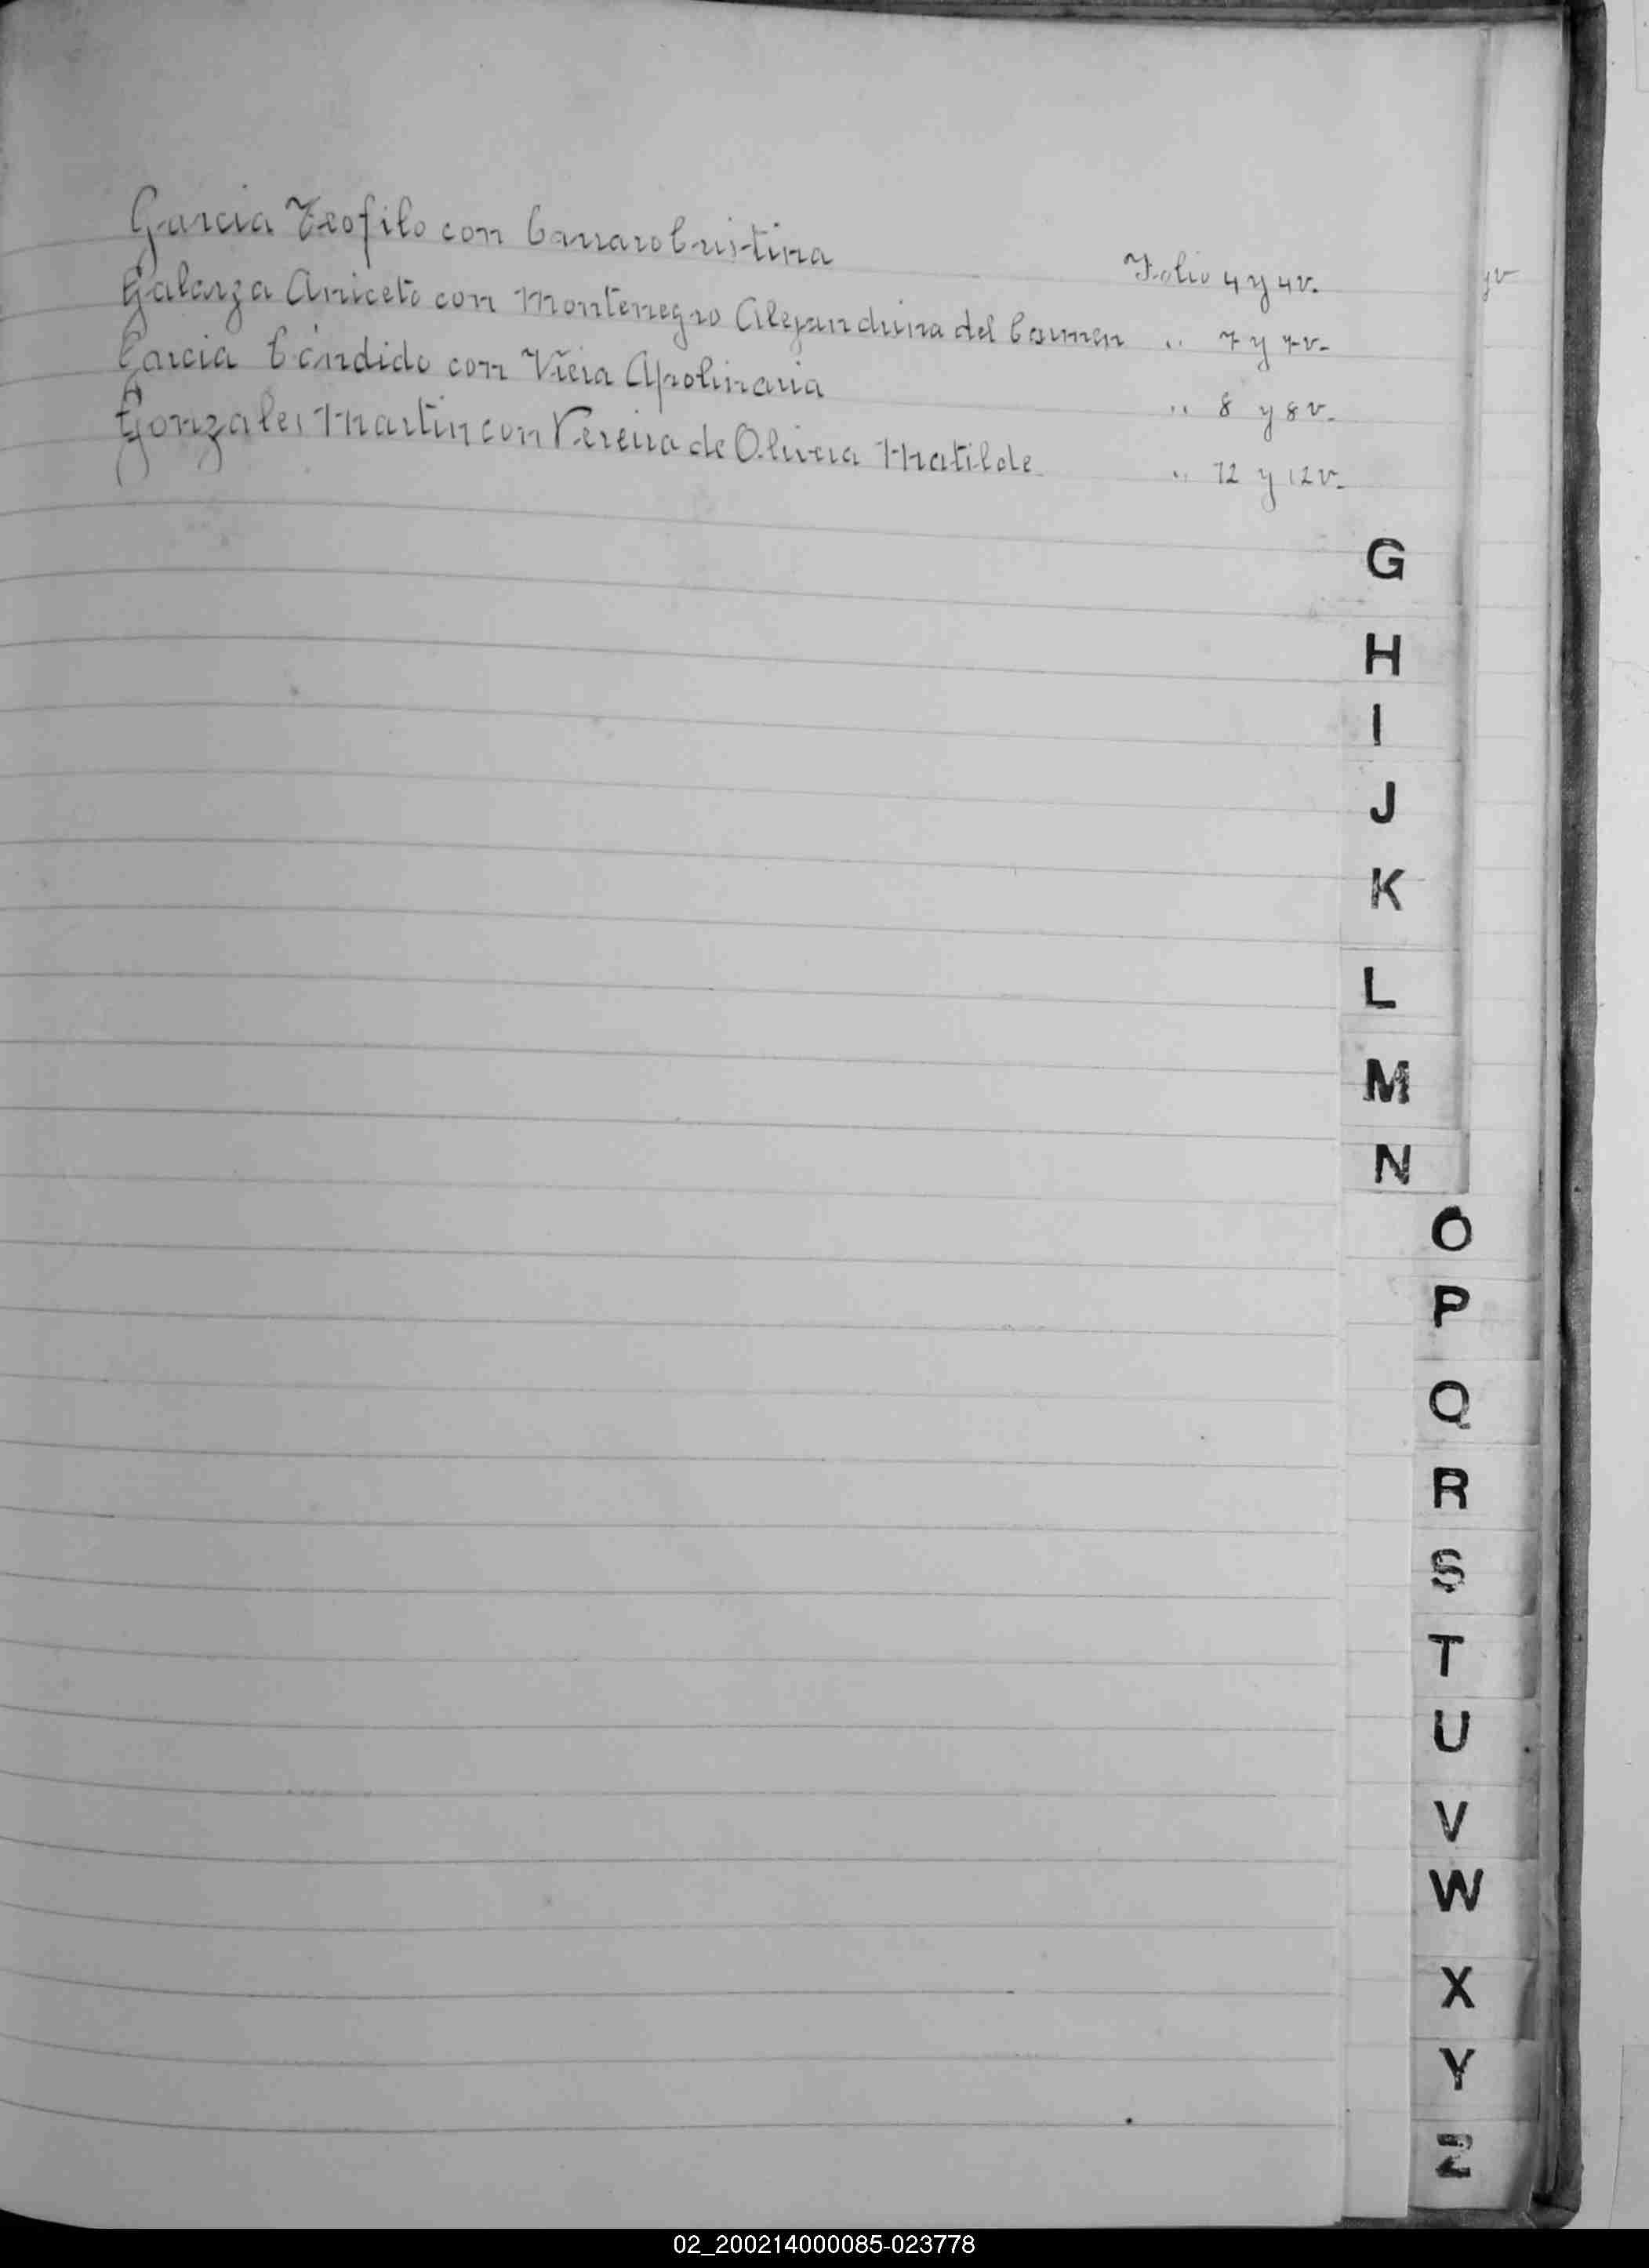 Garcia Teofilo con Carraro Cristina Folio 4 y 4v.
Galarza Aniceto con Montenegro Alejandrina del Carmen " 7 y 7v.
Garcia Cándido con Vieia Apolinaria " 8 y 8v.
Gonzales Martin con Pereira de Olivera Matilde " 12 y 12v.
G
H
I
J
K
L
M
N
O
P
Q
R
S
T
U
V
W
X
Y
Z
02_200214000085-023778